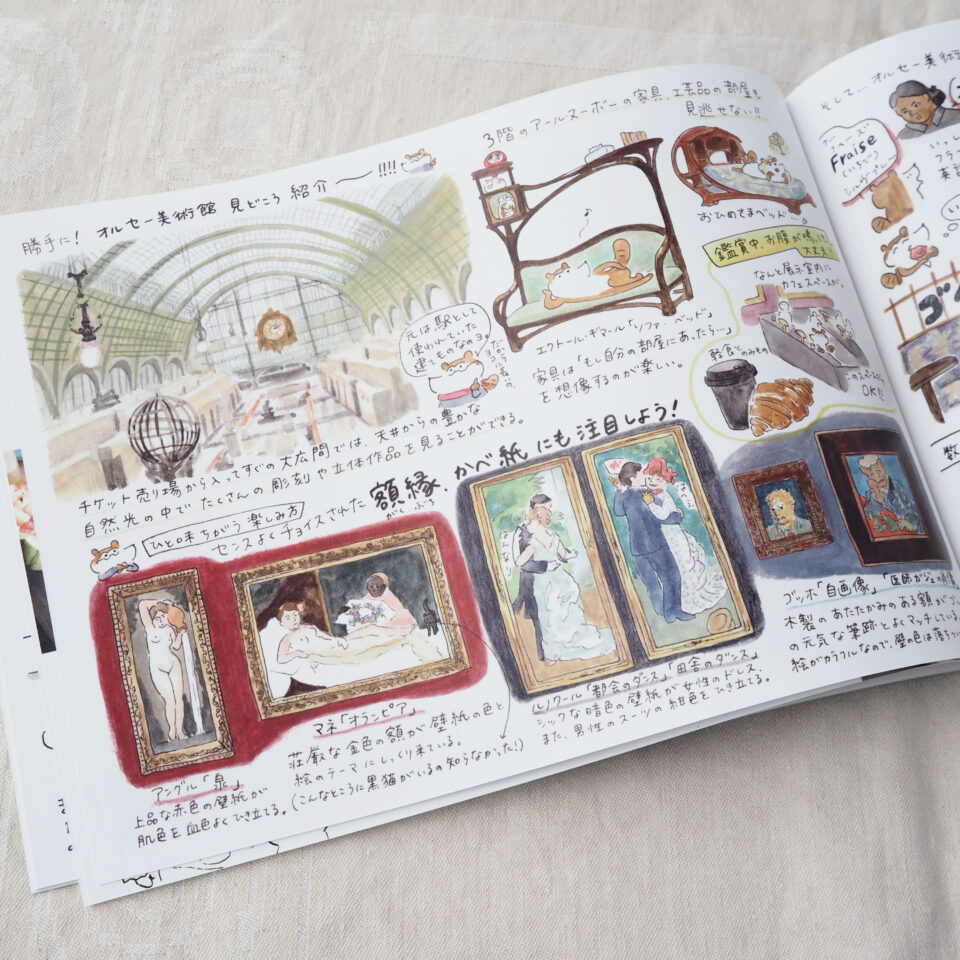 勝手に! オルセー美術館 見どころ 紹介〜!!!!
元は駅として
使われていた
建てものなのヨ
チケット売り場から入ってすぐの大広間では、天井からの豊かな
自然光の中でたくさんの彫刻や立体作品を見ることができる。
3階のアールヌーボーの家具、工芸品の部屋も
見逃せない!!
エクトール・ギマール「ソファ・ベッド」
家具は「もし自分の部屋にあったら…」
を想像するのが楽しい。
おひめさまベッド…。
鑑賞中、お腹が鳴っても
大丈夫
なんと展示室内に
カフェスペースが。
軽食とのみもの
このスペース
OK!!
ひと味ちがう楽しみ方
センスよくチョイスされた
額縁、かべ紙にも注目しよう!
がくぶち
アングル「泉」
上品な赤色の壁紙が
肌色を血色よくひき立てる。
マネ「オランピア」
荘厳な金色の額が壁紙の色と
絵のテーマにしっくり来ている。
(こんなところに黒猫がいるの知らなかった!)
ルノワール「都会のダンス」「田舎のダンス」
シックな暗色の壁紙が女性のドレス、
また、男性のスーツの紺色をひき立てる。
ゴッホ「自画像」「医師ガジェの
木製のあたたかみのある額が
の元気な筆跡とよくマッチしている
絵がカラフルなので、壁の色は落ちつい
そして… オルセー美術
Fraise
(いちご)
シルヴプレ
いっし
フラ
英語